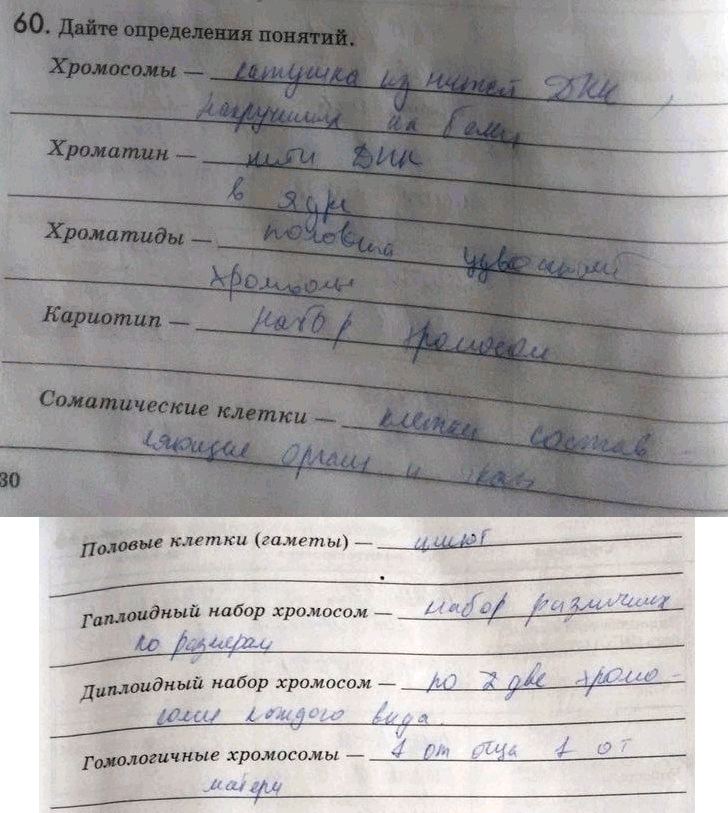 60. Дайте определения понятий.
Хромосомы — катушка из нитей ДНК,
накрученных на белки
Хроматин — нити ДНК
в ядре
Хроматиды — половина удвоенной
хромосомы
Кариотип — набор хромосом
Соматические клетки — клетки состав-
ляющие органы и ткан
30
Половые клетки (гаметы) — имеют
Гаплоидный набор хромосом — набор различных
по размерам
Диплоидный набор хромосом — по 2 две хромо-
сомы каждого вида.
Гомологичные хромосомы — 1 от отца 1 от
матери